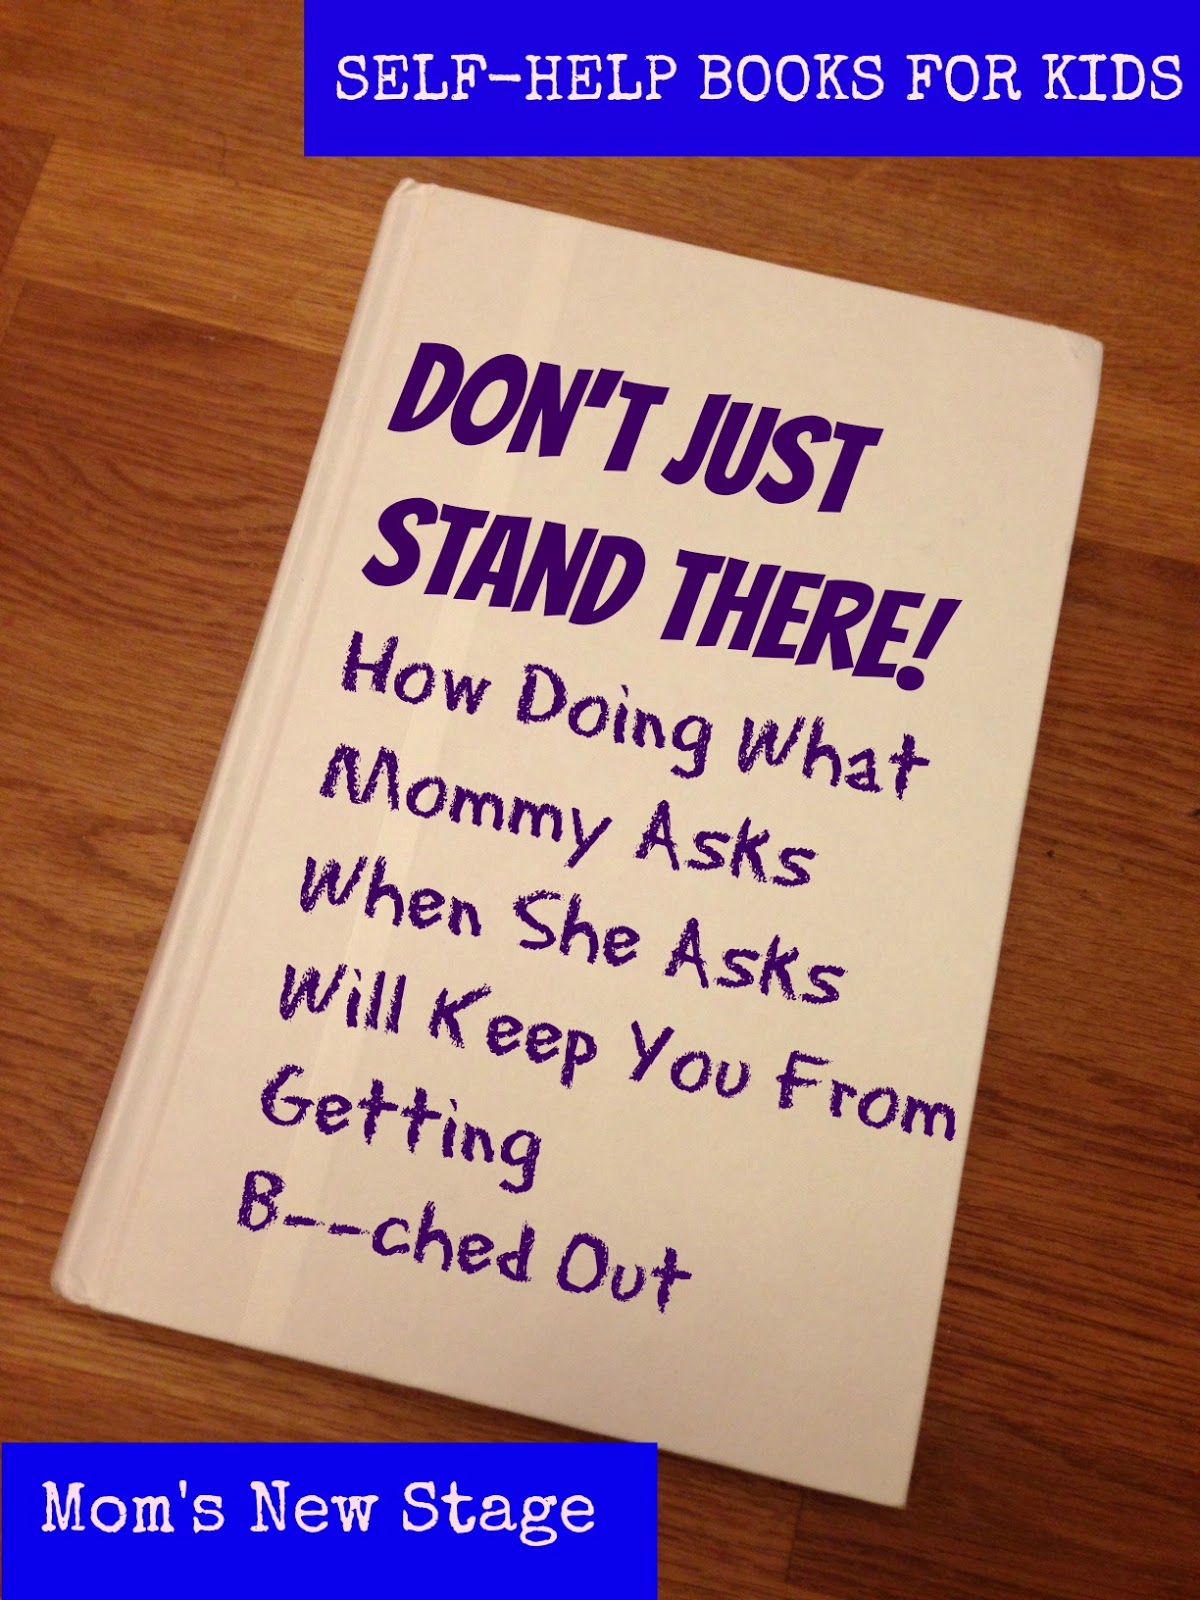 SELF-HELP BOOKS FOR KIDS
DON'T JUST
STAND THERE!
How Doing What
Mommy Asks
When She Asks
Will Keep You From
Getting
B--ched Out
Mom's New Stage